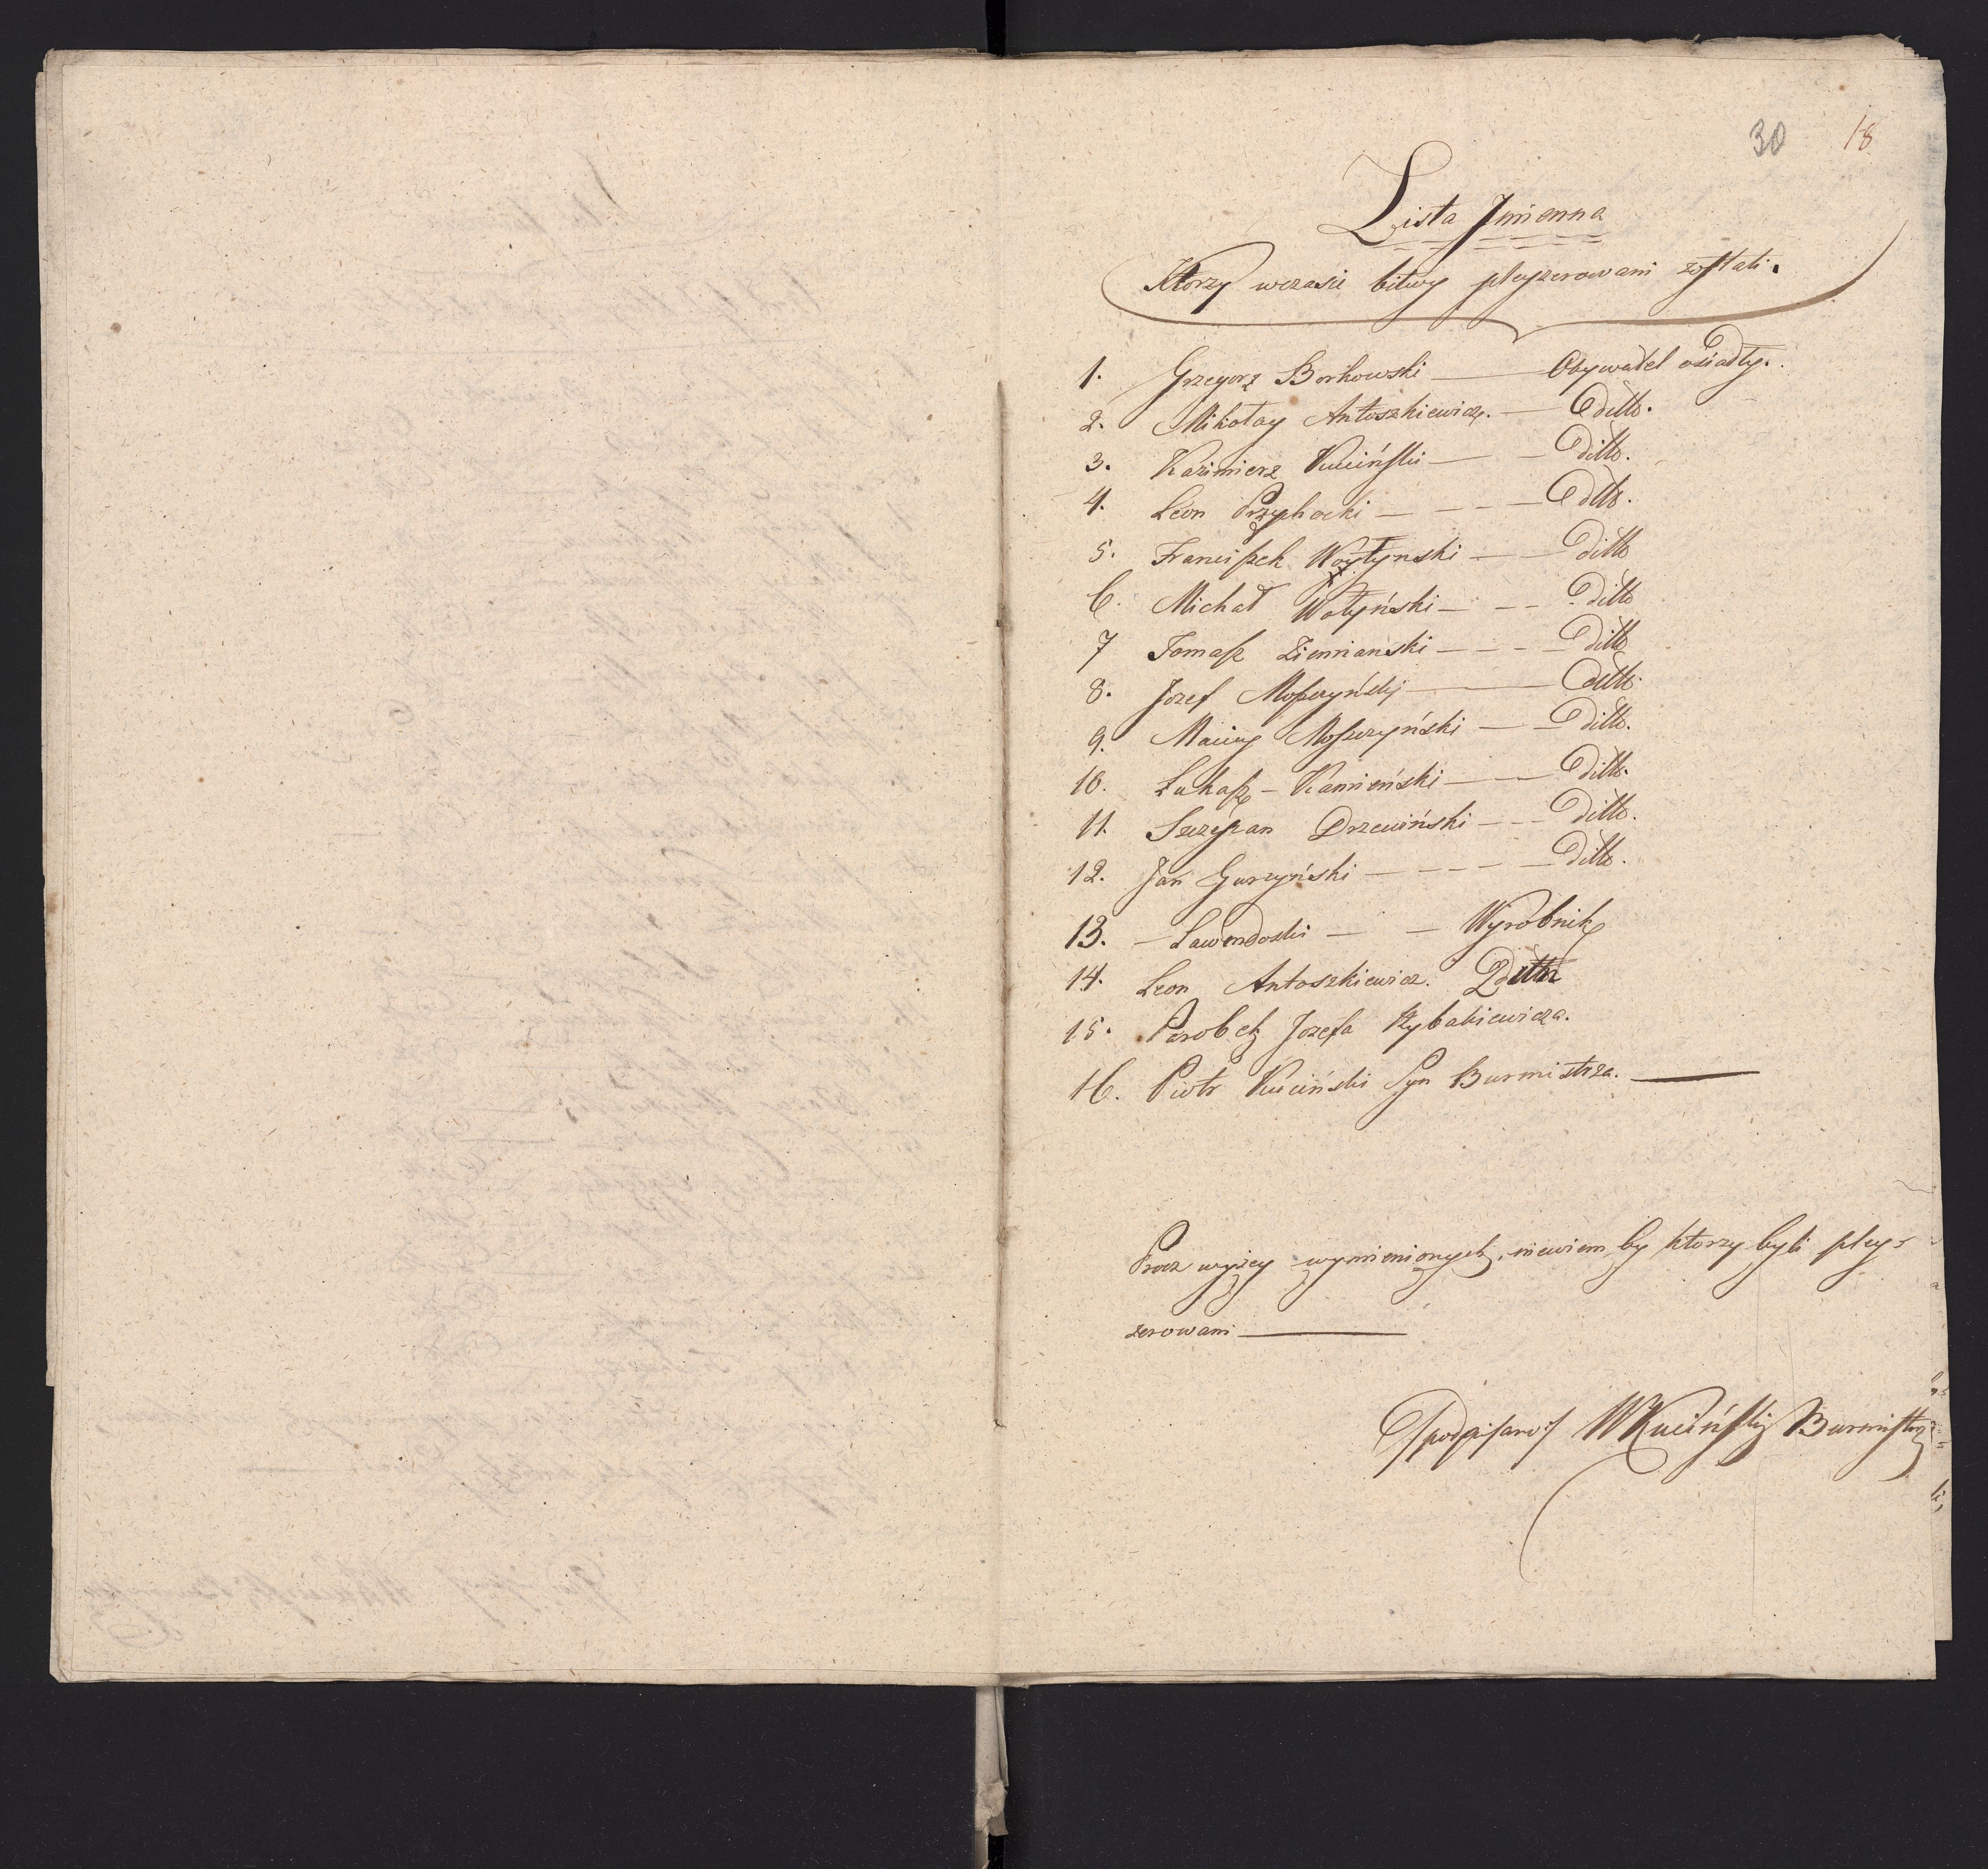 30 18
Lista Jmienna
Ktorzy wczasie bitwy pleyzerowani zostali.
1. Grzegorz Borkowski — Obywatel osiadły.
2. Mikołay Antoszkiewicz. — ditto.
3. Kazimierz Kuciński — — ditto.
4. Leon Przychocki — - - — ditto.
5. Franciszek Woytynski — — ditto
6. Michał Wołyński — - — ditto
7 Tomasz Ziemianski — - - — ditto
8. Jozef Moszczyńskj — ditto.
9. Maciey Moszczyński — — ditto.
10. Łukasz — Kamieński — — ditto.
11. Szczepan Drzewiński — - - ditto.
12. Jan Gurzyński — - - - — ditto.
13. — Lawendoski — — Wyrobnik
14. Leon Antoszkiewicz. Ditto
15. Parobek Jozefa Rybakiewicza.
16. Piotr Kuciński Syn Burmistrza. —
Procz wyżey wymienionych, niewiem by ktorzy byli pley-
zerowani —
/podpisano:/ WKuciński Burmistrz